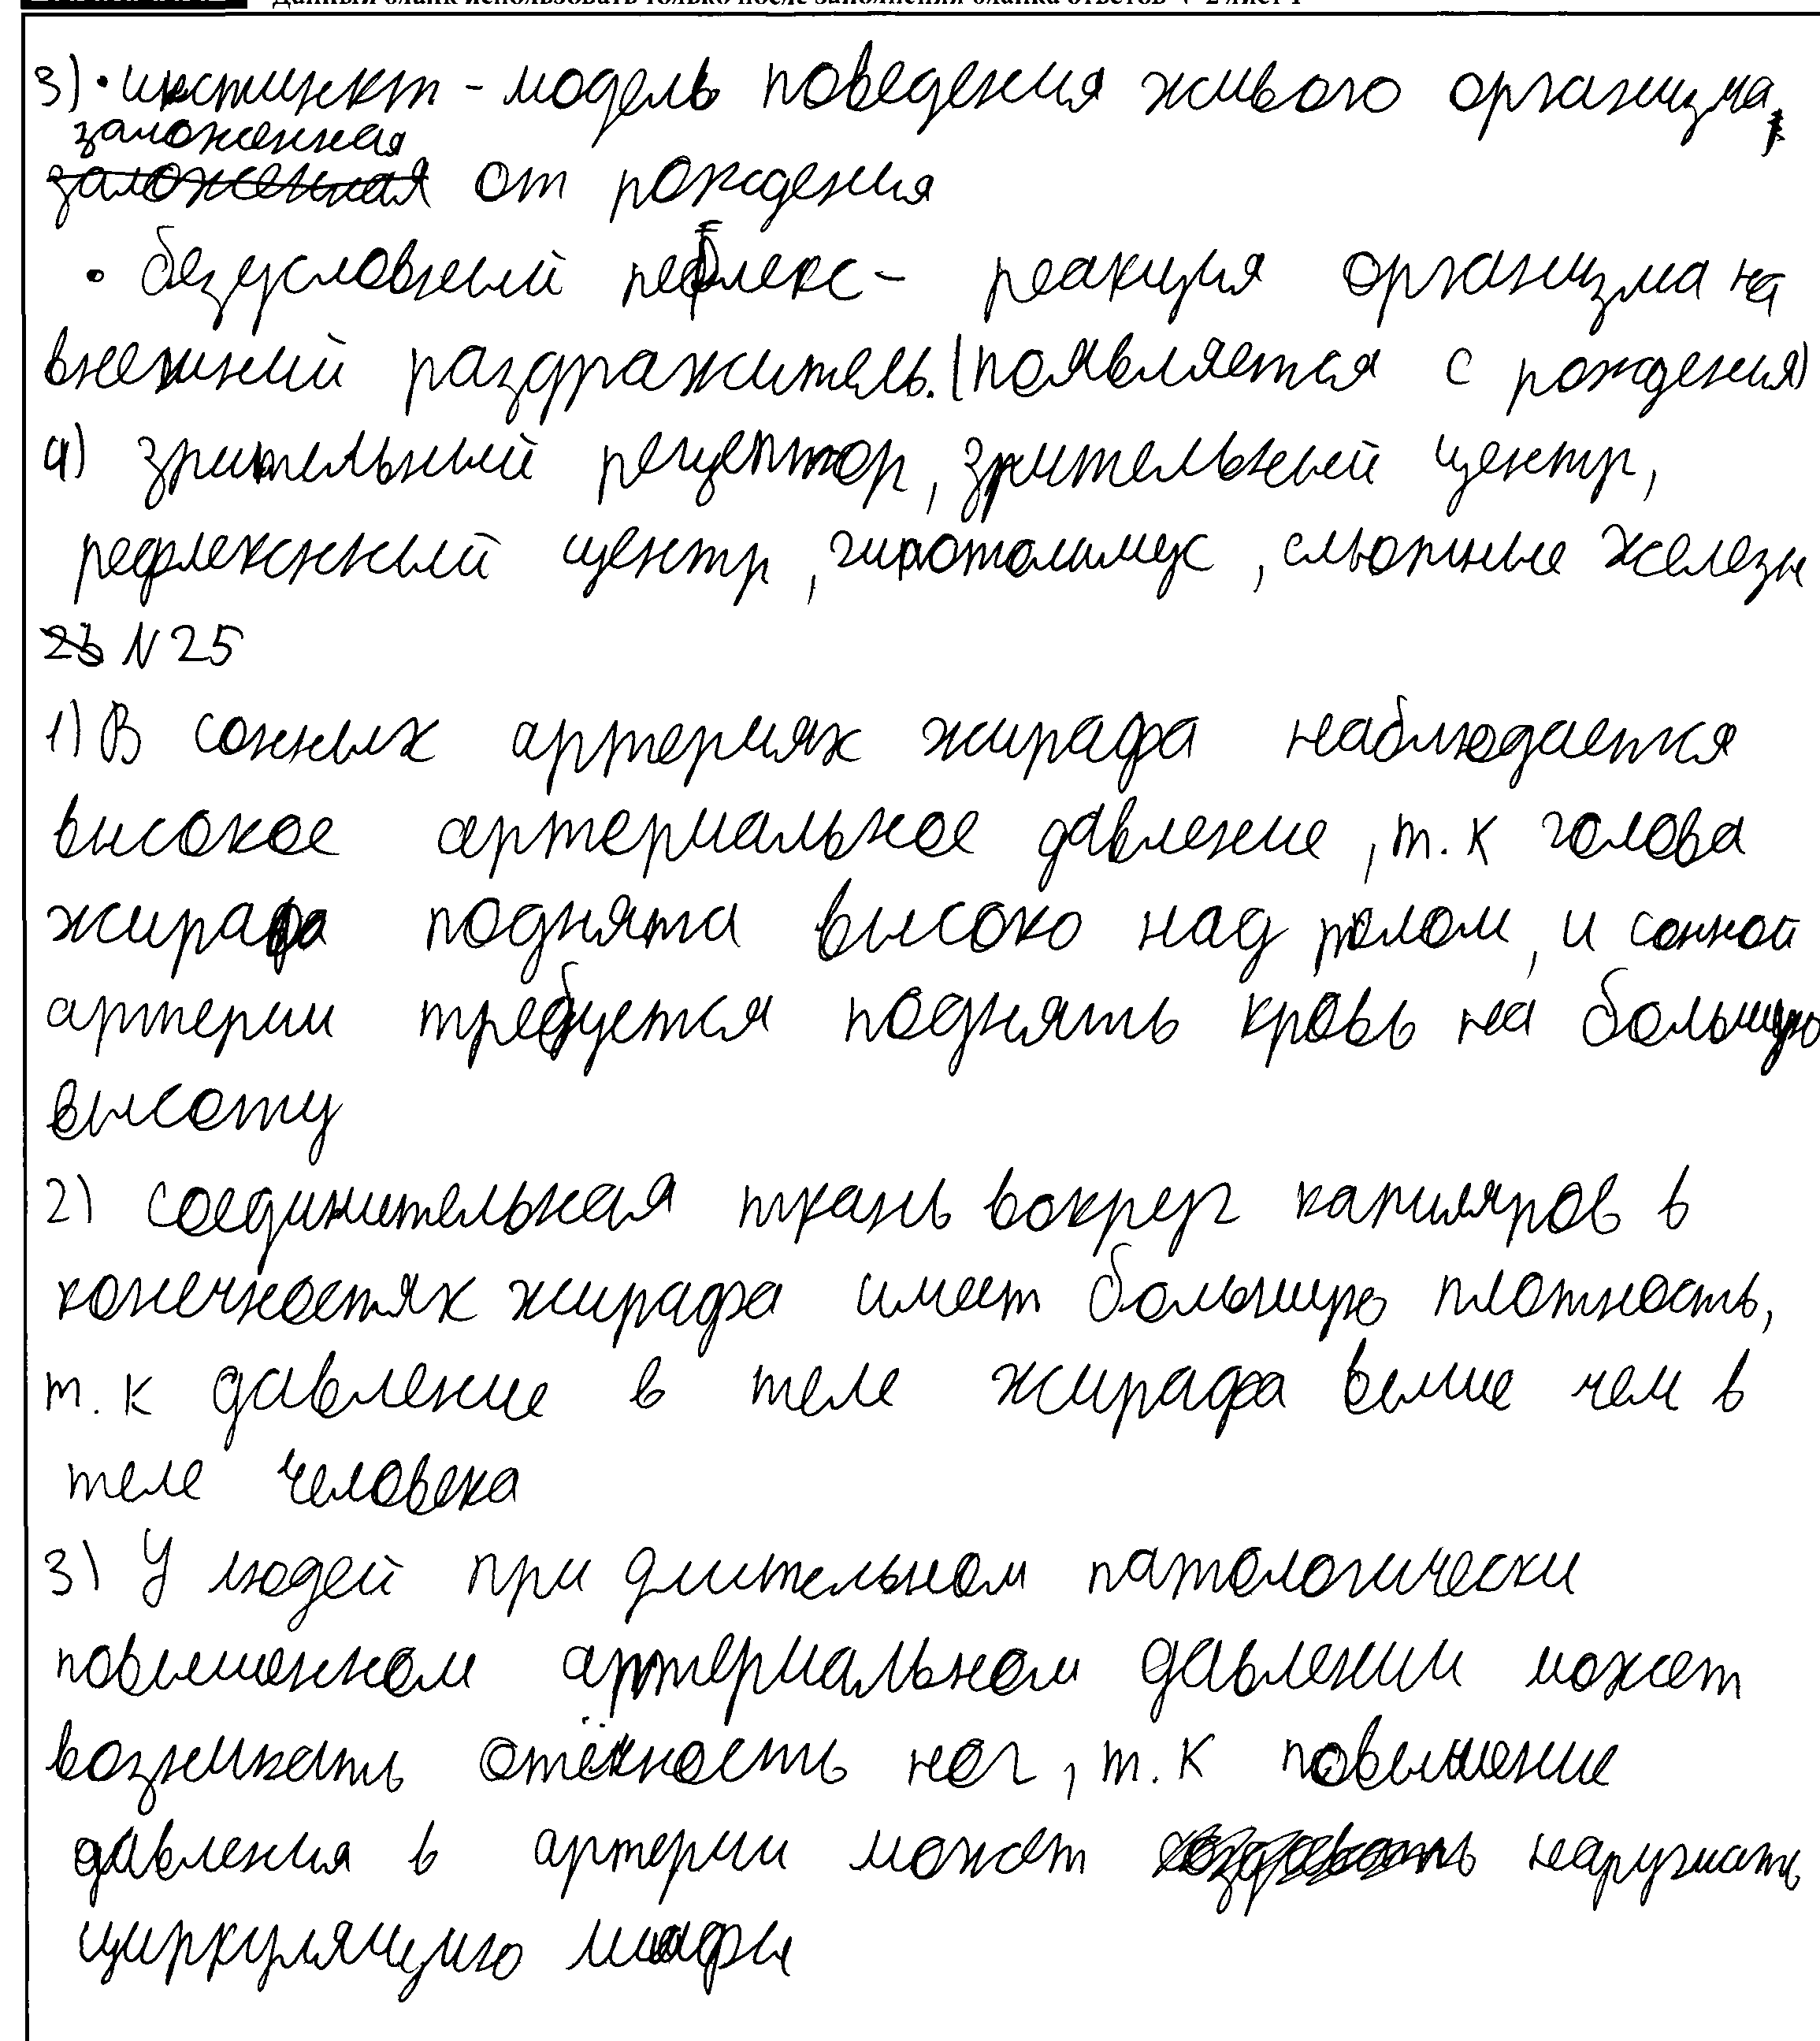 Данный бланк использовать только после заполнения бланка ответов № 2 лист 1
3) • инстинкт - модель поведения живого организма,
заложенная
заложенная от рождения
• безусловный рефлекс - реакция организма на
внешний раздражитель. (появляется с рождения)
4) зрительный рецептор, зрительный центр,
рефлексный центр, гипоталамус, слюнные железы
23 N 25
1) В сонных артериях жирафа наблюдается
высокое артериальное давление, т.к голова
жирафа поднята высоко над телом, и сонной
артерии требуется поднять кровь на большую
высоту
2) соединительная ткань вокруг капиляров в
конечностях жирафа имеет большую плотность,
т.к давление в теле жирафа выше чем в
теле человека
3) У людей при длительном патологически
повышенном артериальном давлении может
возникать отёкность ног, т.к повышение
давления в артерии может нарушать
циркуляцию лимфы